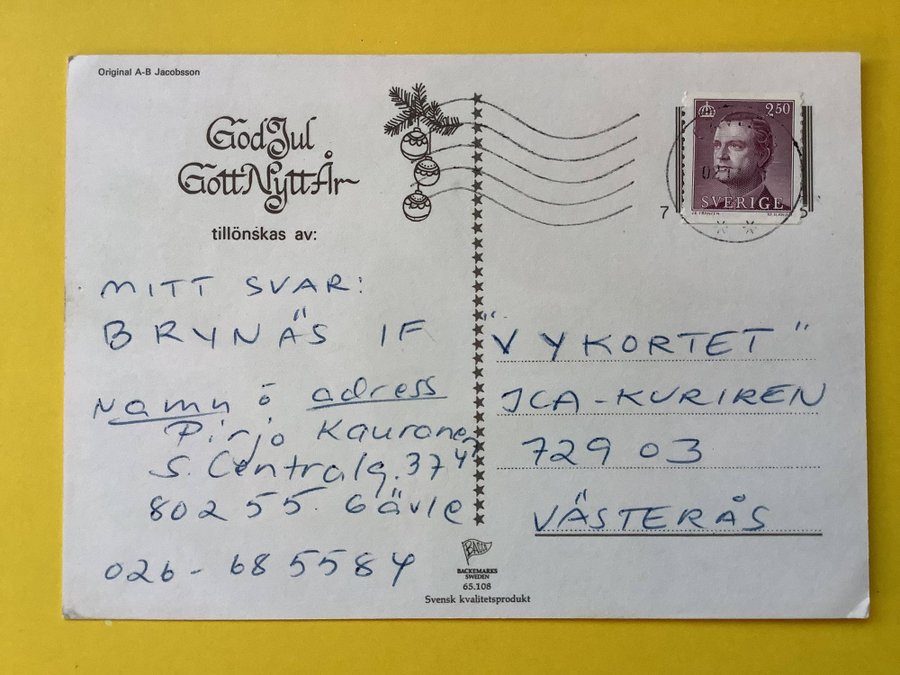 Original A-B Jacobsson
God Jul
Gott Nytt År
tillönskas av:
MITT SVAR:
BRYNÄS IF
Namn o adress
Pirjo Kauronen
S. Centralg. 37 4
802 55 Gävle
026-685584
2,50
SVERIGE
7 5
"VYKORTET"
ICA-KURIREN
729 03
VÄSTERÅS
BACKEMARKS
SWEDEN
65.108
Svensk kvalitetsprodukt